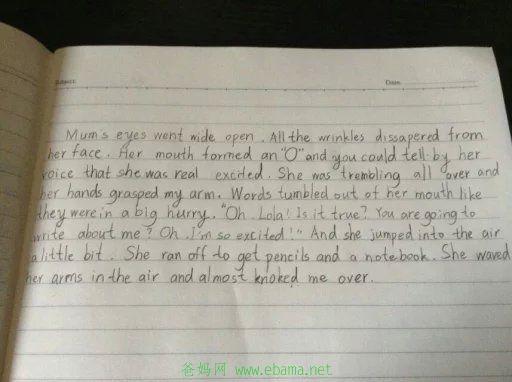 Subject:
Date:
Mum's eyes went wide open. All the wrinkles dissapered from
her face. Her mouth formed an "O" and you could tell by her
voice that she was real excited. She was trembling all over and
her hands grasped my arm. Words tumbled out of her mouth like
they were in a big hurry. "Oh. Lola! Is it true? You are going to
write about me? Oh. I'm so excited!" And she jumped into the air
a little bit. She ran off to get pencils and a notebook. She waved
her arms in the air and almost knoked me over.
爸妈网 www.ebama.net